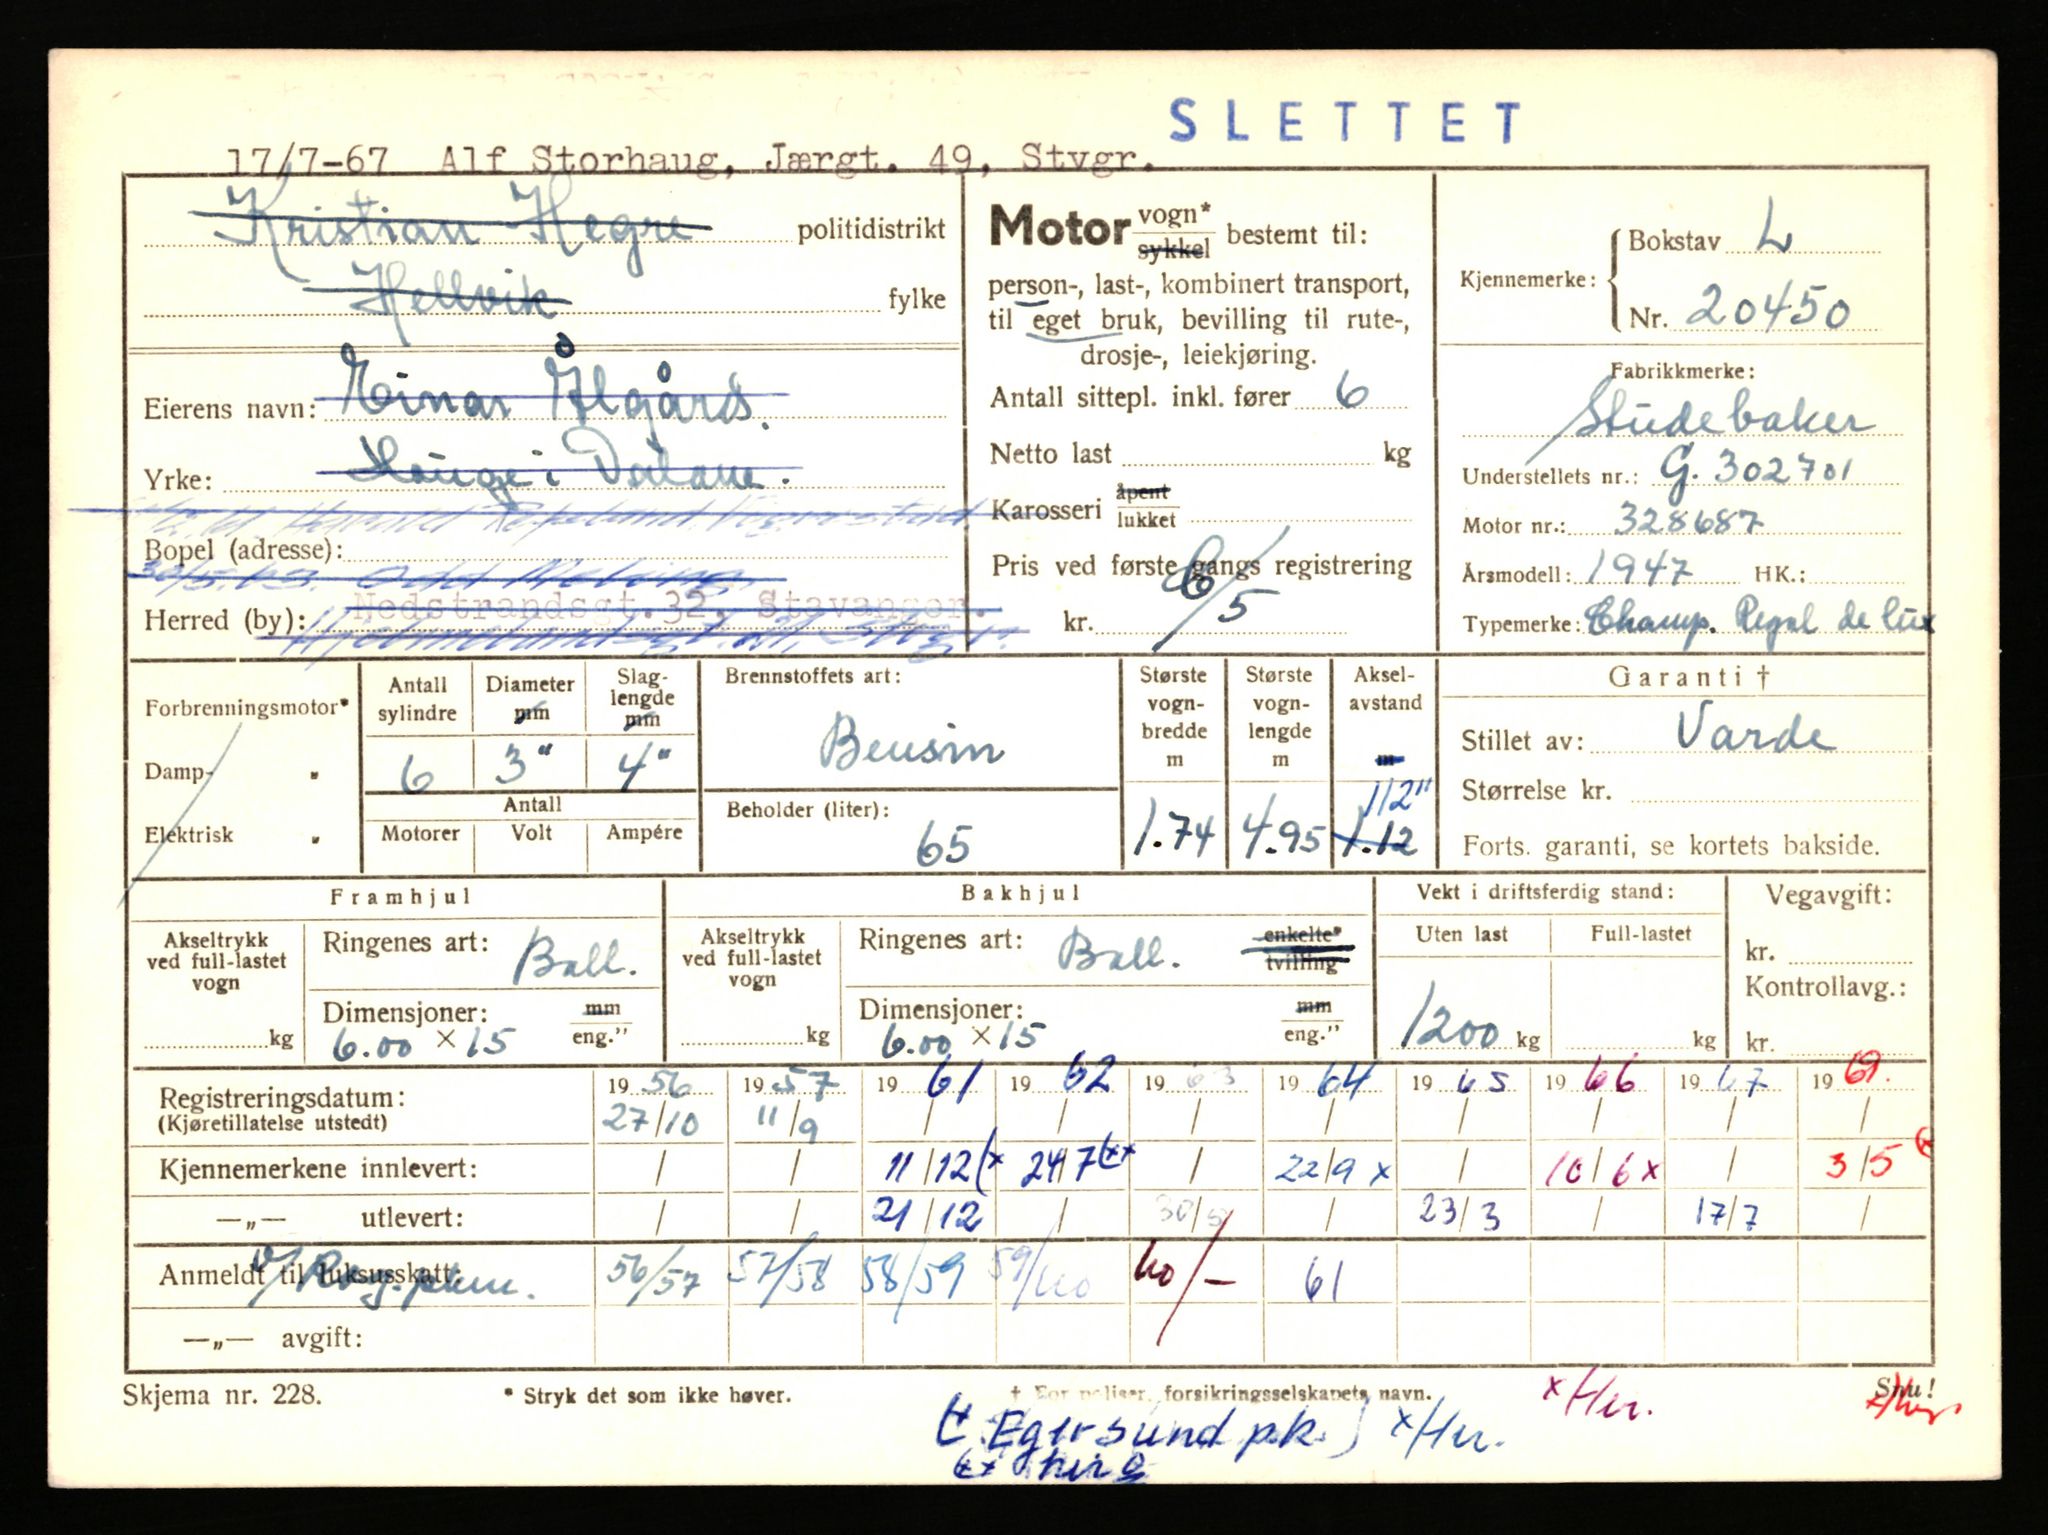 SLETTET
17/7-67 Alf Storhaug, Jærgt. 49, Stvgr.
Kristian Hegre politidistrikt
Hellvik fylke
Eierens navn: Einar Ålgård.
Yrke: Hauge i Dalane.
Bopel (adresse):
30/5.63. Odd
Herred (by): Nedstrandsgt.32, Stavanger.
Motor vogn* sykkel bestemt til:
person-, last-, kombinert transport,
til eget bruk, bevilling til rute-,
drosje-, leiekjøring.
Antall sittepl. inkl. fører 6
Netto last kg
Karosseri åpent lukket
Pris ved første gangs registrering
kr. 6/5
Kjennemerke: Bokstav L
Nr. 20450
Fabrikkmerke:
Studebaker
Understellets nr.: G. 302701
Motor nr.: 328687
Årsmodell: 1947 HK.:
Typemerke: Champ. Regal de lux
Forbrenningsmotor*
Damp- „
Elektrisk „
Antall sylindre 6
Diameter mm 3"
Slaglengde mm 4"
Antall
Motorer Volt Ampére
Brennstoffets art:
Bensin
Beholder (liter):
65
Største vogn-bredde m 1.74
Største vogn-lengde m 4.95
Aksel-avstand m 112" 1.12
Garanti †
Stillet av: Varde
Størrelse kr.
Forts. garanti, se kortets bakside.
Framhjul
Akseltrykk ved full-lastet vogn kg
Ringenes art: Ball.
Dimensjoner: mm eng."
6.00 × 15
Bakhjul
Akseltrykk ved full-lastet vogn kg
Ringenes art: Ball. enkelte* tvilling
Dimensjoner: mm eng."
6.00 × 15
Vekt i driftsferdig stand:
Uten last Full-lastet
1200 kg kg
Vegavgift:
kr.
Kontrollavg.:
kr.
Registreringsdatum: 1956 1957 1961 1962 1963 1964 1965 1966 1967 1969.
(Kjøretillatelse utstedt) 27/10 11/9 / / / / / / / /
Kjennemerkene innlevert: / / 11/12 (x 24/7 (xx / 22/9 x / 10/6 x / 3/5 (x
—„— utlevert: / / 21/12 / 30/5 / 23/3 / 17/7 /
Anmeldt til luksusskatt: 56/57 57/58 58/59 59/60 60/– 61
—„— avgift:
Skjema nr. 228.
* Stryk det som ikke høver.
† For poliser, forsikringsselskapets navn.
Snu!
(x Egersund p.k.) x/Her. x/Her.
(xx